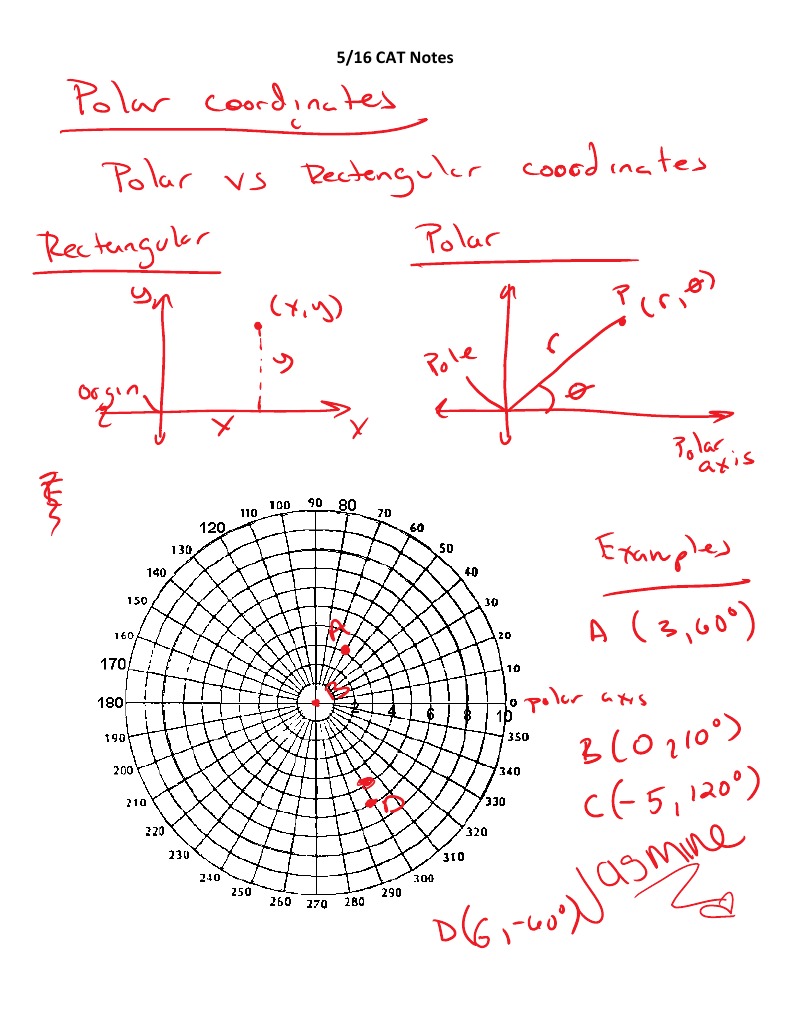 5/16 CAT Notes
Polar coordinates
Polar vs Rectengular cooordinates
Rectungular
Polar
y
(x,y)
y
orgin
x
x
P (r, θ)
r
Pole
θ
Polar
axis
Examples
A (3,60°)
B(0,10°)
C(-5,120°)
D(6,-60°)
Jasmine
90
80
70
60
50
40
30
20
10
0
polar axis
350
340
330
320
310
300
290
280
270
260
250
240
230
220
210
200
190
180
170
160
150
140
130
120
110
100
2
4
6
8
10
A
B
D